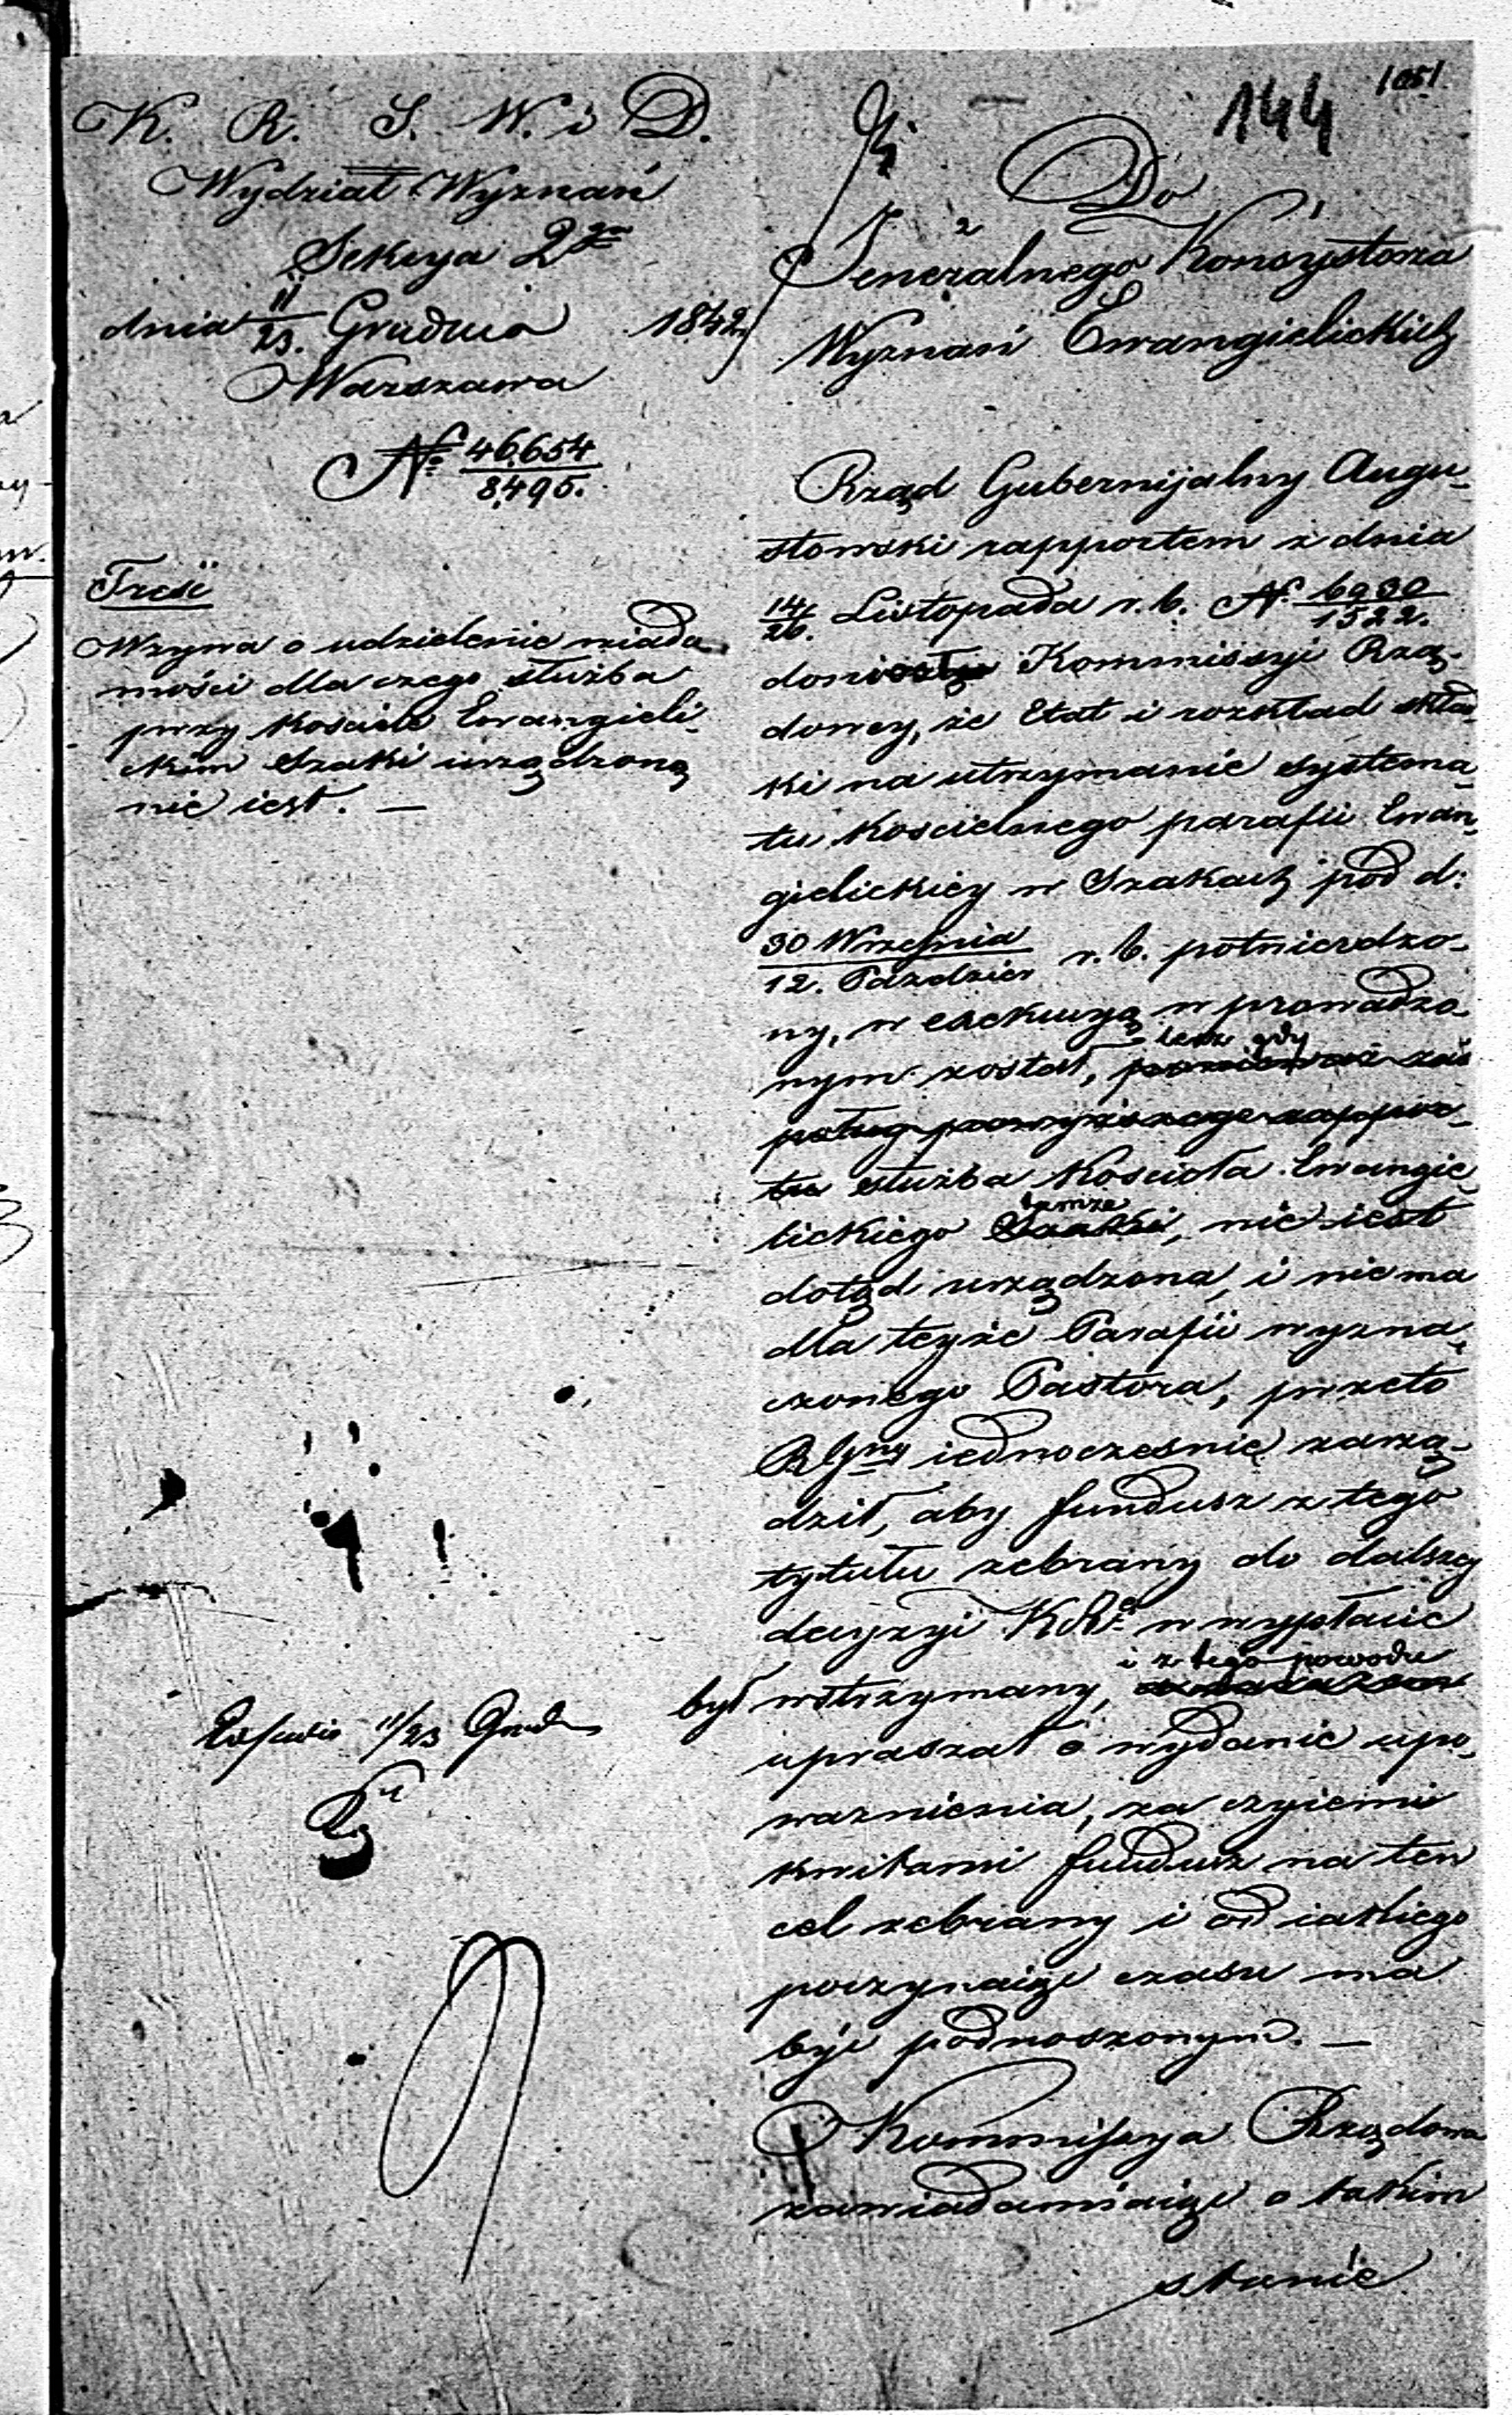 144
K. R. S. W. i D.
Wydział Wyznań
Sekcya 2ga
dnia 11/23. Grudnia 1842
Warszawa
No 46,654/8,495.
Treść
Wzywa o udzielenie wiado-
mości dla czego służba
przy Kościele Ewangieli-
ckim Szaki urządzoną
nie iest. —
11/23 Grud
Do
Jeneralnego Konsystorza
Wyznań Ewangielickich
Rząd Gubernijalny Augu-
stowski rapportem z dnia
14/26. Listopada r. b. N. 6930/1522.
doniosł Kommissyi Rzą-
dowey, że Etat i rozkład skład-
ki na utrzymanie systema-
tu kościelnego parafii Ewan-
gielickiey w Szakach pod d:
30 Września/12. Paździer r. b. potwierdzo-
ny, w exekucyą wprowadzo-
nym został, ponieważ zaś lecz gdy
podług powyższego rappor-
tu służba Kościoła Ewangie-
lickiego Szaki tamże, nie iest
dotąd urządzona, i nie ma
dla teyże Parafii wyzna-
czonego Pastora, przeto
RGny iednocześnie zarzą-
dził, aby fundusz z tego
tytułu zebrany do dalszey
decyzyi KRz w wypłacie
był wstrzymany, i z tego powodu
upraszał o wydanie upo-
ważnienia, za czyiemi
kwitami fundusz na ten
cel zebrany i od iakiego
poczynaiąc czasu ma
być podnoszonym. —
Kommissya Rządowa
zawiadamiaiąc o takim
stanie